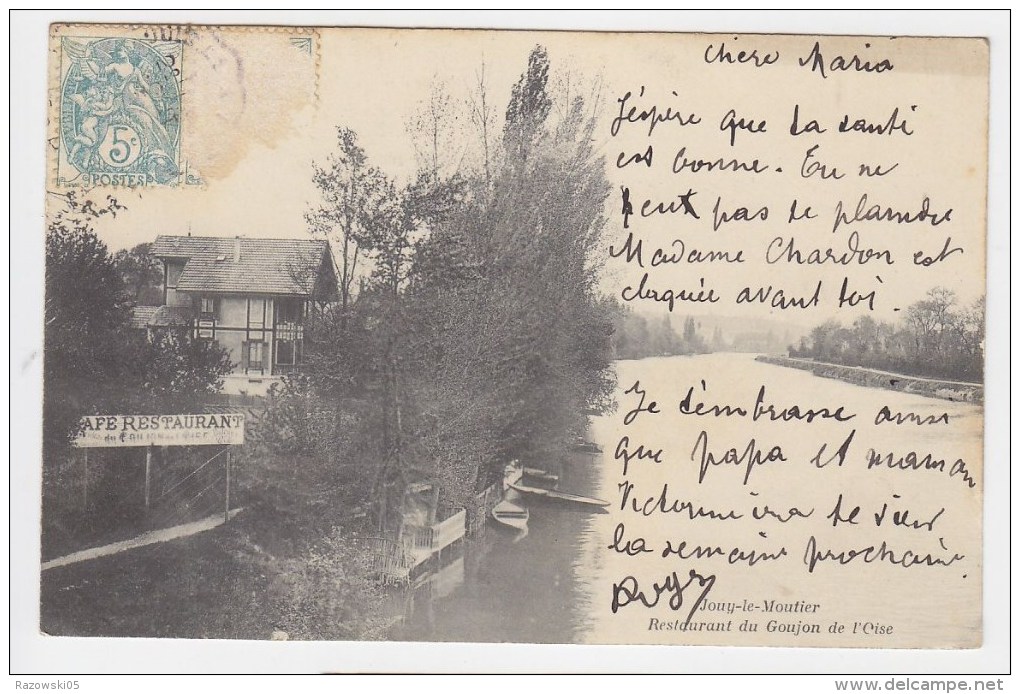 5c
POSTES
Chère Maria
J'éspère que ta santi
est bonne. Tu ne
peux pas te plaindre
Madame Chardon est
claquée avant toi.
Je t'embrasse ainsi
que papa et maman
Victor ira te voir
la semaine prochaine
CAFÉ RESTAURANT
du GOUJON
Jouy-le-Moutier
Restaurant du Goujon de l'Oise
Razowski05
www.delcampe.net